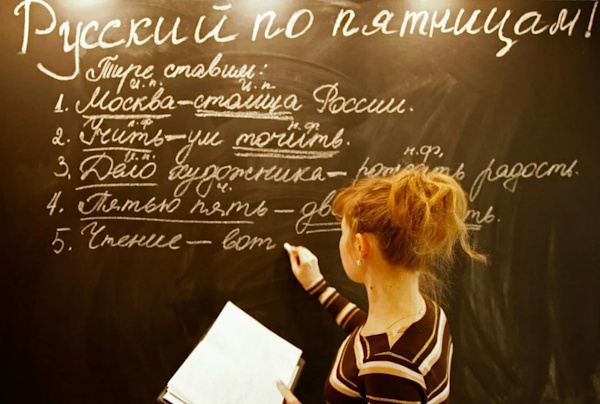 Русский по пятницам!
Тире ставим:
и.п. и.п.
1. Москва – столица России.
н.ф. н.ф.
2. Учить – ум точить.
и.п. н.ф.
3. Дело художника – рождать радость.
ч.
4. Пятью пять – дв ть.
5. Чтение – вот